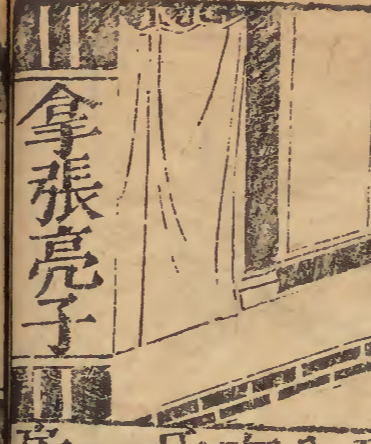 拿張亮子